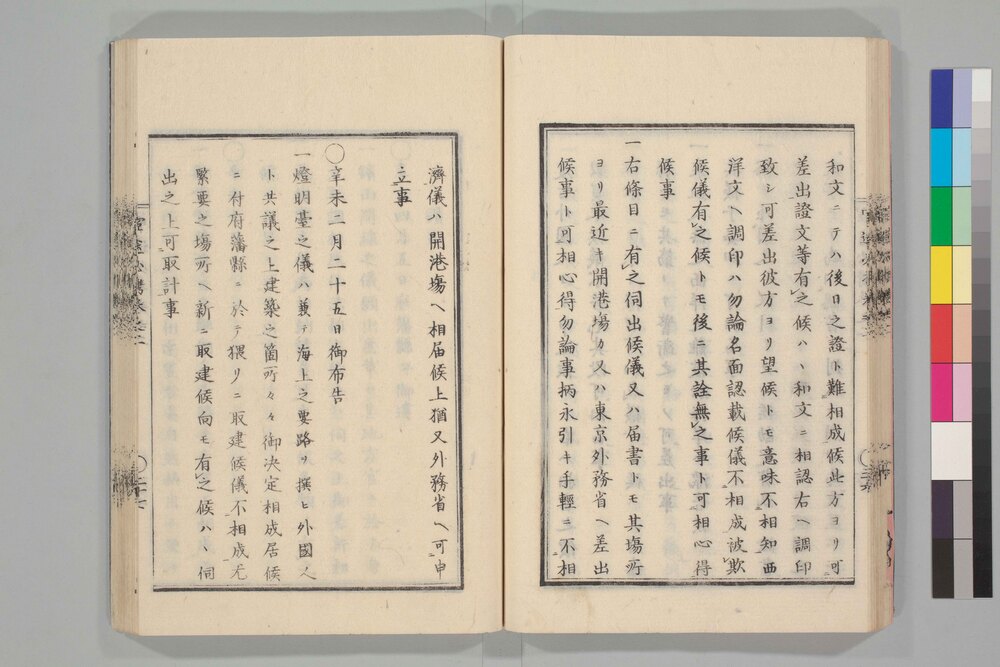 和文ニテハ後日之證ト難相成候此方ヨリ可
差出證文等有之候ハヽ和文ニ相認右ヘ調印
致シ可差出彼方ヨリ望候トモ意味不相知西
洋文ヘ調印ハ勿論名面認載候儀不相成被欺
候儀有之候トモ後ニ其詮無之事ト可相心得
候事
一右條目ニ有之伺出候儀又ハ届書トモ其場所
ヨリ最近キ開港場カ又ハ東京外務省ヘ差出
候事ト可相心得勿論事柄永引キ手輕ニ不相
濟儀ハ開港場ヘ相届候上猶又外務省ヘ可申
立事
〇辛未二月二十五日御布告
一燈明臺之儀ハ兼テ海上之要路ヲ撰ヒ外國人
ト共議之上建築之箇所々々御決定相成居候
ニ付府藩縣ニ於テ猥リニ取建候儀不相成尤
緊要之場所ヘ新ニ取建候向モ有之候ハヽ伺
出之上可取計事